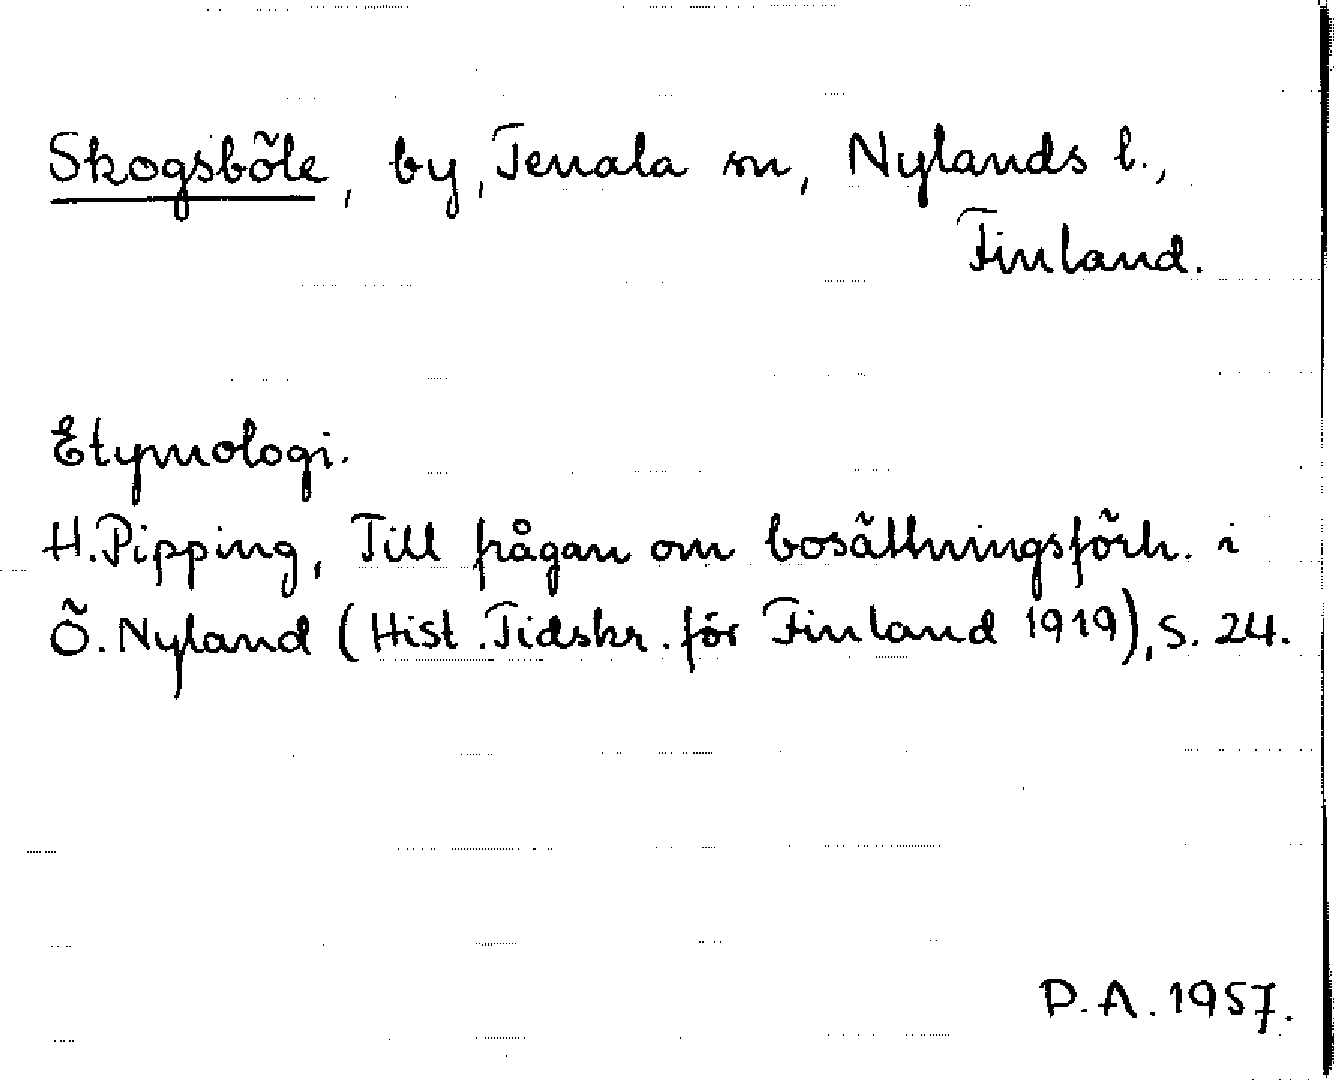 Skogsböle, by, Tenala sn, Nylands l.,
Finland.
Etymologi.
H. Pipping, Till frågan om bosättningsförh. i
Ö. Nyland (Hist. Tidskr. för Finland 1919), s. 24.
P.A. 1957.